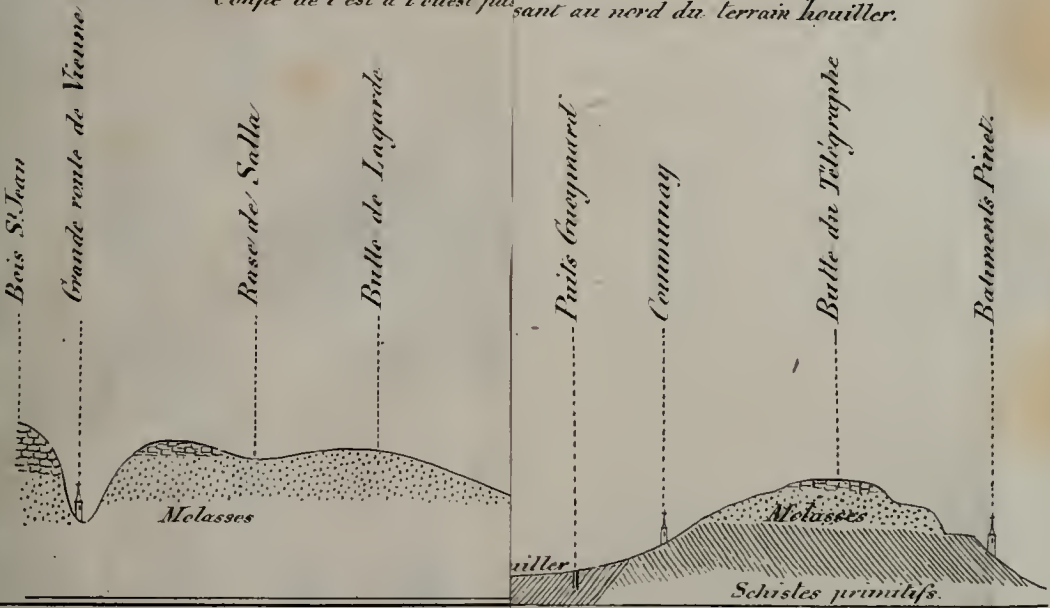 Coupe de l'est à l'ouest pas sant au nord du terrain houiller.
Bois St Jean
Grande route de Vienne
Rase de Salla
Butte de Lagarde
Puits Gueymard
Communay
Butte du Télégraphe
Batiments Pinet.
Molasses
Molasses
uiller
Schistes primitifs.